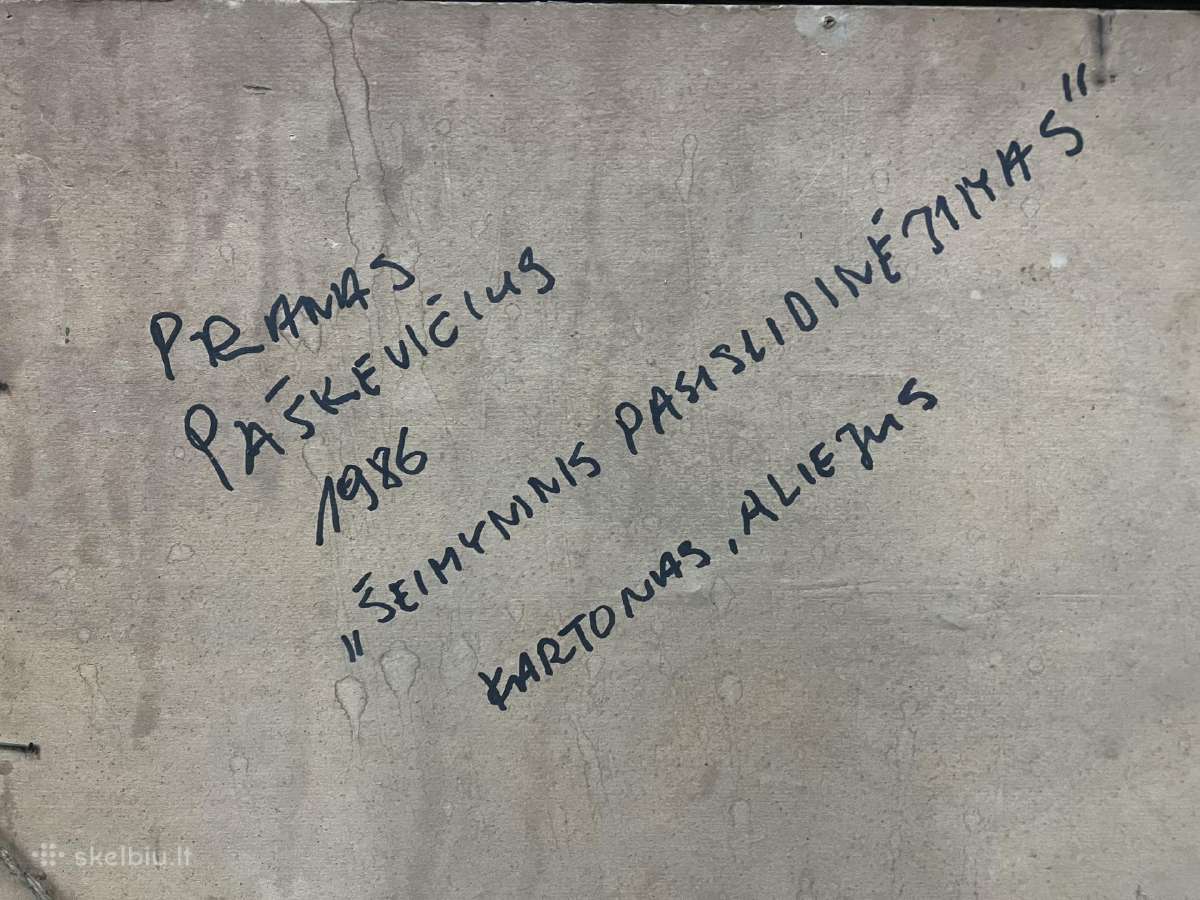 PRANAS
PAŠKEVIČIUS
1986
„ŠEIMYNINIS PASISLIDINĖJIMAS"
KARTONAS, ALIEJUS
skelbiu.lt